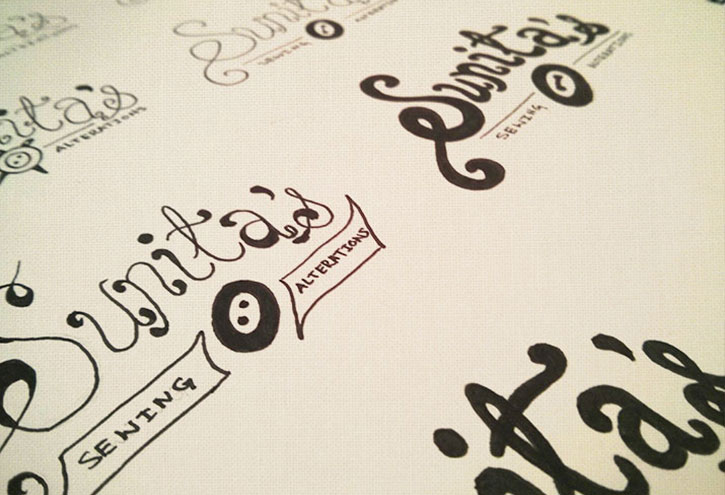 ALTERATIONS
Sunita's
SEWING
ALTERATIONS
Sunita's
SEWING
ALTERATIONS
ita's
ALTERATIONS
Sunita's
SEWING
ALTERATIONS
nita's